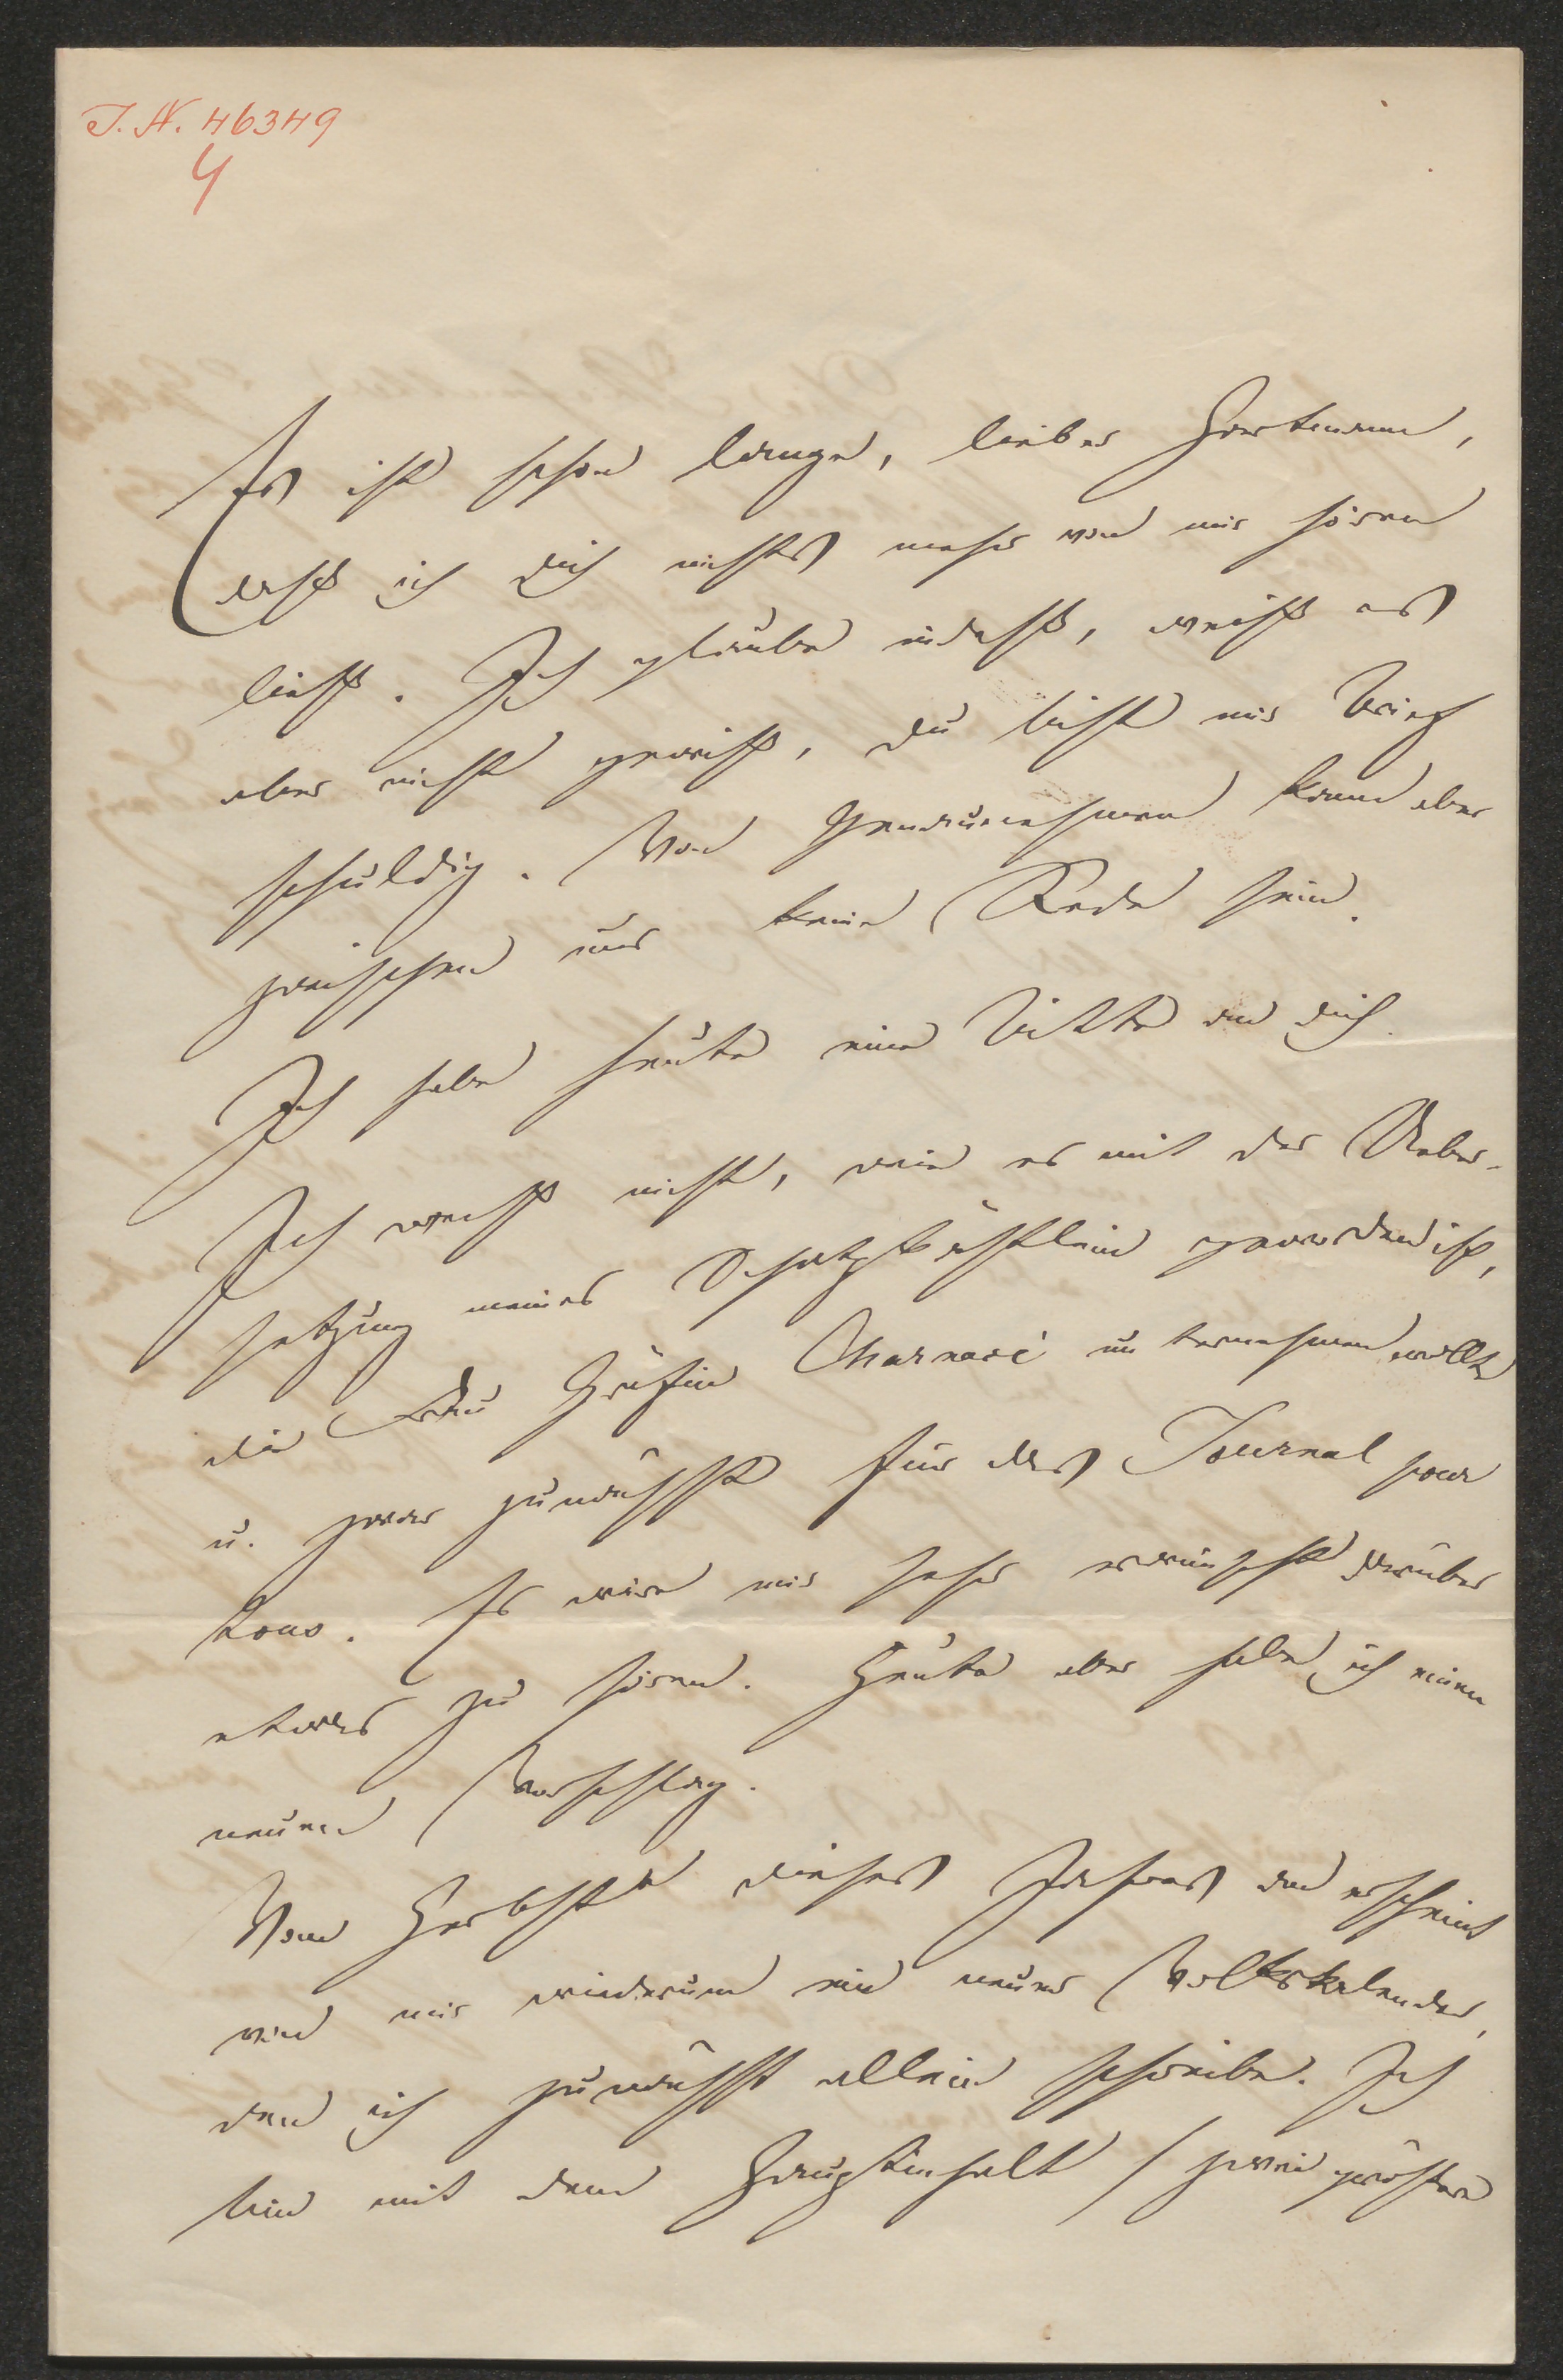 I. N. 46349
4
Es ist schon lange, lieber Hartmann,
daß ich Dich nichts mehr von mir hören
ließ. Ich glaube indeß, weiß es
aber nicht gewiß, du bist mir Brief
schuldig. Von Genaunehmen kann aber
zwischen uns keine Rede sein.
Ich habe heute eine Bitte an dich.
Ich weiß nicht, wie es mit der Ueber-
setzung meines Schatzkästlein geworden ist,
die Frau Gräfin Charnacé unternehmen wollte
u. zwar zunächst für das Journal pour
tous. Es wäre mir sehr erwünscht darüber
etwas zu hören. Heute aber habe ich einen
neuen Vorschlag.
Vom Herbste dieses Jahres an erscheint
von mir wiederum ein neuer Volkskalender,
den ich zunächst allein schreibe. Ich
bin mit dem Hauptinhalt / zwei größere